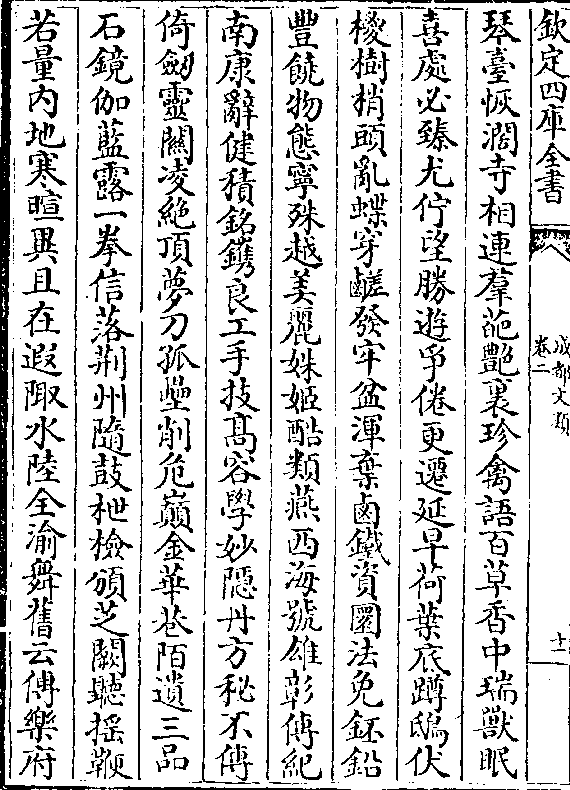 欽定四庫全書
成都文類
卷二
十一
琴臺恢濶寺相連羣葩艷裏珍禽語百草香中瑞獸眠
喜處必臻尤佇望勝遊爭倦更遷延早荷葉底蹲鴟伏
椶樹梢頭亂蝶穿鹺發牢盆渾棄鹵鐵資圜法免鈺鉛
豐饒物態寧殊越美麗姝姬酷類燕西海號雄彰傳紀
南康辭健積銘鐫良工手技髙容學妙隠丹方秘不傳
倚劒靈關凌絶頂夢刀孤壘削危巔金華巷陌遺三品
石鏡伽藍露一拳信落荆州隨鼓枻檢頒芝闕聽揺鞭
若量内地寒暄異且在遐陬水陸全渝舞舊云傳樂府